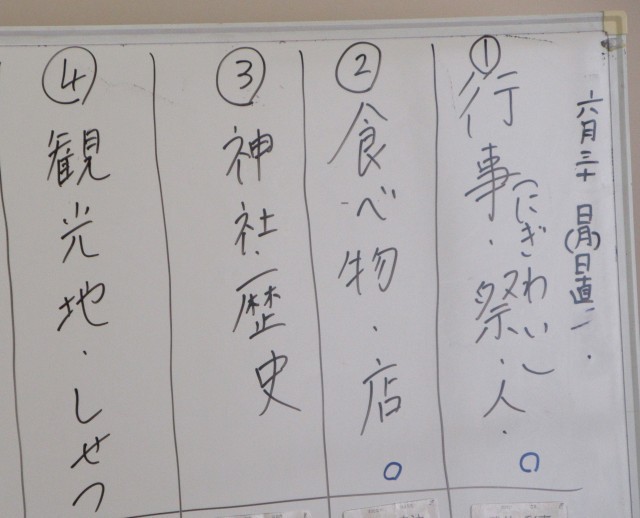 六月三十日(月)日直
①行事・祭・人・
「にぎわい」
②食べ物・店
③神社・歴史
④観光地・しせつ